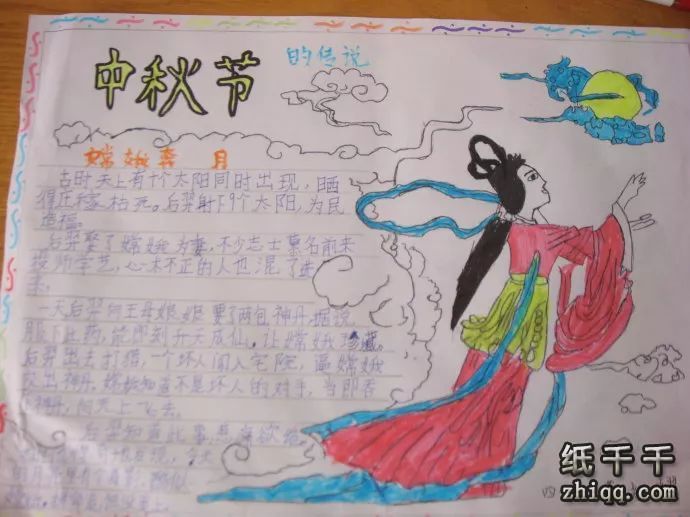 中秋节 的传说
嫦娥奔月
古时天上有十个太阳同时出现，晒
得庄稼枯死。后羿射下9个太阳，为民
造福。
后羿娶了嫦娥为妻，不少志士慕名前来
投师学艺，心术不正的人也混了进
来。
一天后羿向王母娘娘要了两包神丹，据说
服下此药，能即刻升天成仙。让嫦娥珍藏。
后羿出去打猎，一个坏人闯入宅院，逼嫦娥
交出神丹，嫦娥知道不是坏人的对手，当即吞
神丹，向天上飞去。
后羿知道此事，悲痛欲绝
四
纸千千
zhiqq.com